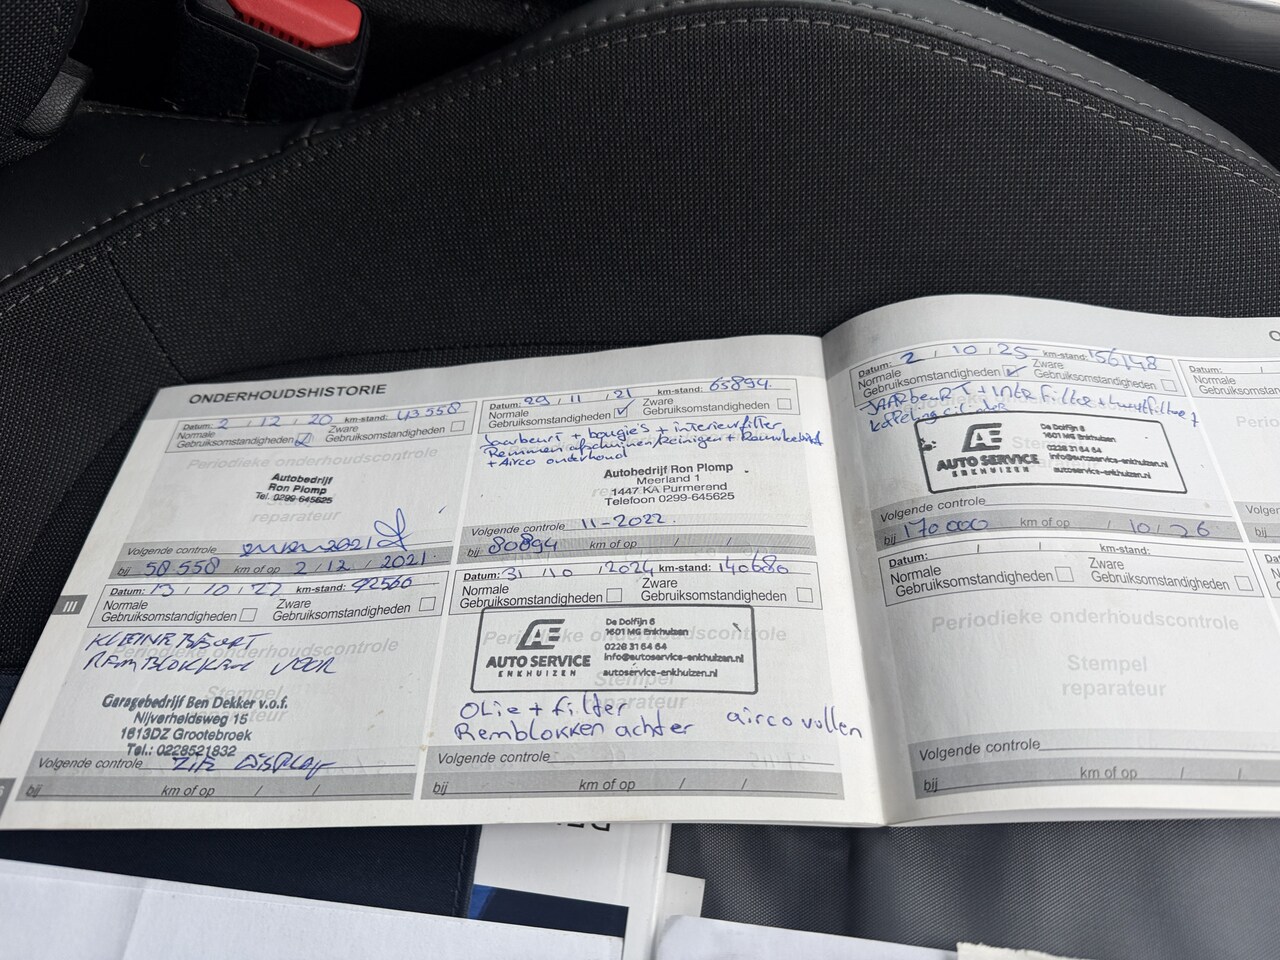 ONDERHOUDSHISTORIE
Datum: 2 / 12 / 20 km-stand: 43558
Normale Gebruiksomstandigheden
Zware Gebruiksomstandigheden
Periodieke onderhoudscontrole
Autobedrijf
Ron Plomp
Tel. 0299-645625
reparateur
Volgende controle
bij 58 558 km of op 2 / 12 / 2021
Datum: 29 / 11 / 21 km-stand: 65894
Normale Gebruiksomstandigheden
Zware Gebruiksomstandigheden
Jaarbeurt + bougie's + interieurfilter
Remmen
+ Airco onderhoud
Autobedrijf Ron Plomp
Meerland 1
1447 KA Purmerend
Telefoon 0299-645625
Volgende controle 11-2022.
bij 80894 km of op / /
Datum: 13 / 10 / 22 km-stand: 92560
Normale Gebruiksomstandigheden
Zware Gebruiksomstandigheden
Periodieke onderhoudscontrole
KLEINE BEURT
REMBLOKKEN VOOR
Stempel
Garagebedrijf Ben Dekker v.o.f.
Nijverheidsweg 15
1613DZ Grootebroek
Tel.: 0228521832
Volgende controle ZIE DISPLAY
bij km of op / /
Datum: 31 / 10 / 2024 km-stand: 140680
Normale Gebruiksomstandigheden
Zware Gebruiksomstandigheden
Periodieke onderhoudscontrole
AE
AUTO SERVICE
ENKHUIZEN
De Dolfijn 6
1601 MG Enkhuizen
0228 31 64 64
info@autoservice-enkhuizen.nl
autoservice-enkhuizen.nl
Stempel
reparateur
Olie + filter
Remblokken achter airco vullen
Volgende controle
bij km of op / /
Datum: 2 / 10 / 25 km-stand: 156148
Normale Gebruiksomstandigheden
Zware Gebruiksomstandigheden
JAARbeurT + intr Filter + luchtfilter +
AE
AUTO SERVICE
ENKHUIZEN
De Dolfijn 6
1601 MG Enkhuizen
0228 31 64 64
info@autoservice-enkhuizen.nl
autoservice-enkhuizen.nl
Volgende controle
bij 170 000 km of op / 10 / 26
Datum: / / km-stand:
Normale Gebruiksomstandigheden
Zware Gebruiksomstandigheden
Periodieke onderhoudscontrole
Stempel
reparateur
Volgende controle
bij km of op / /
Datum:
Normale
Gebruiksom
Volgend
bij
III